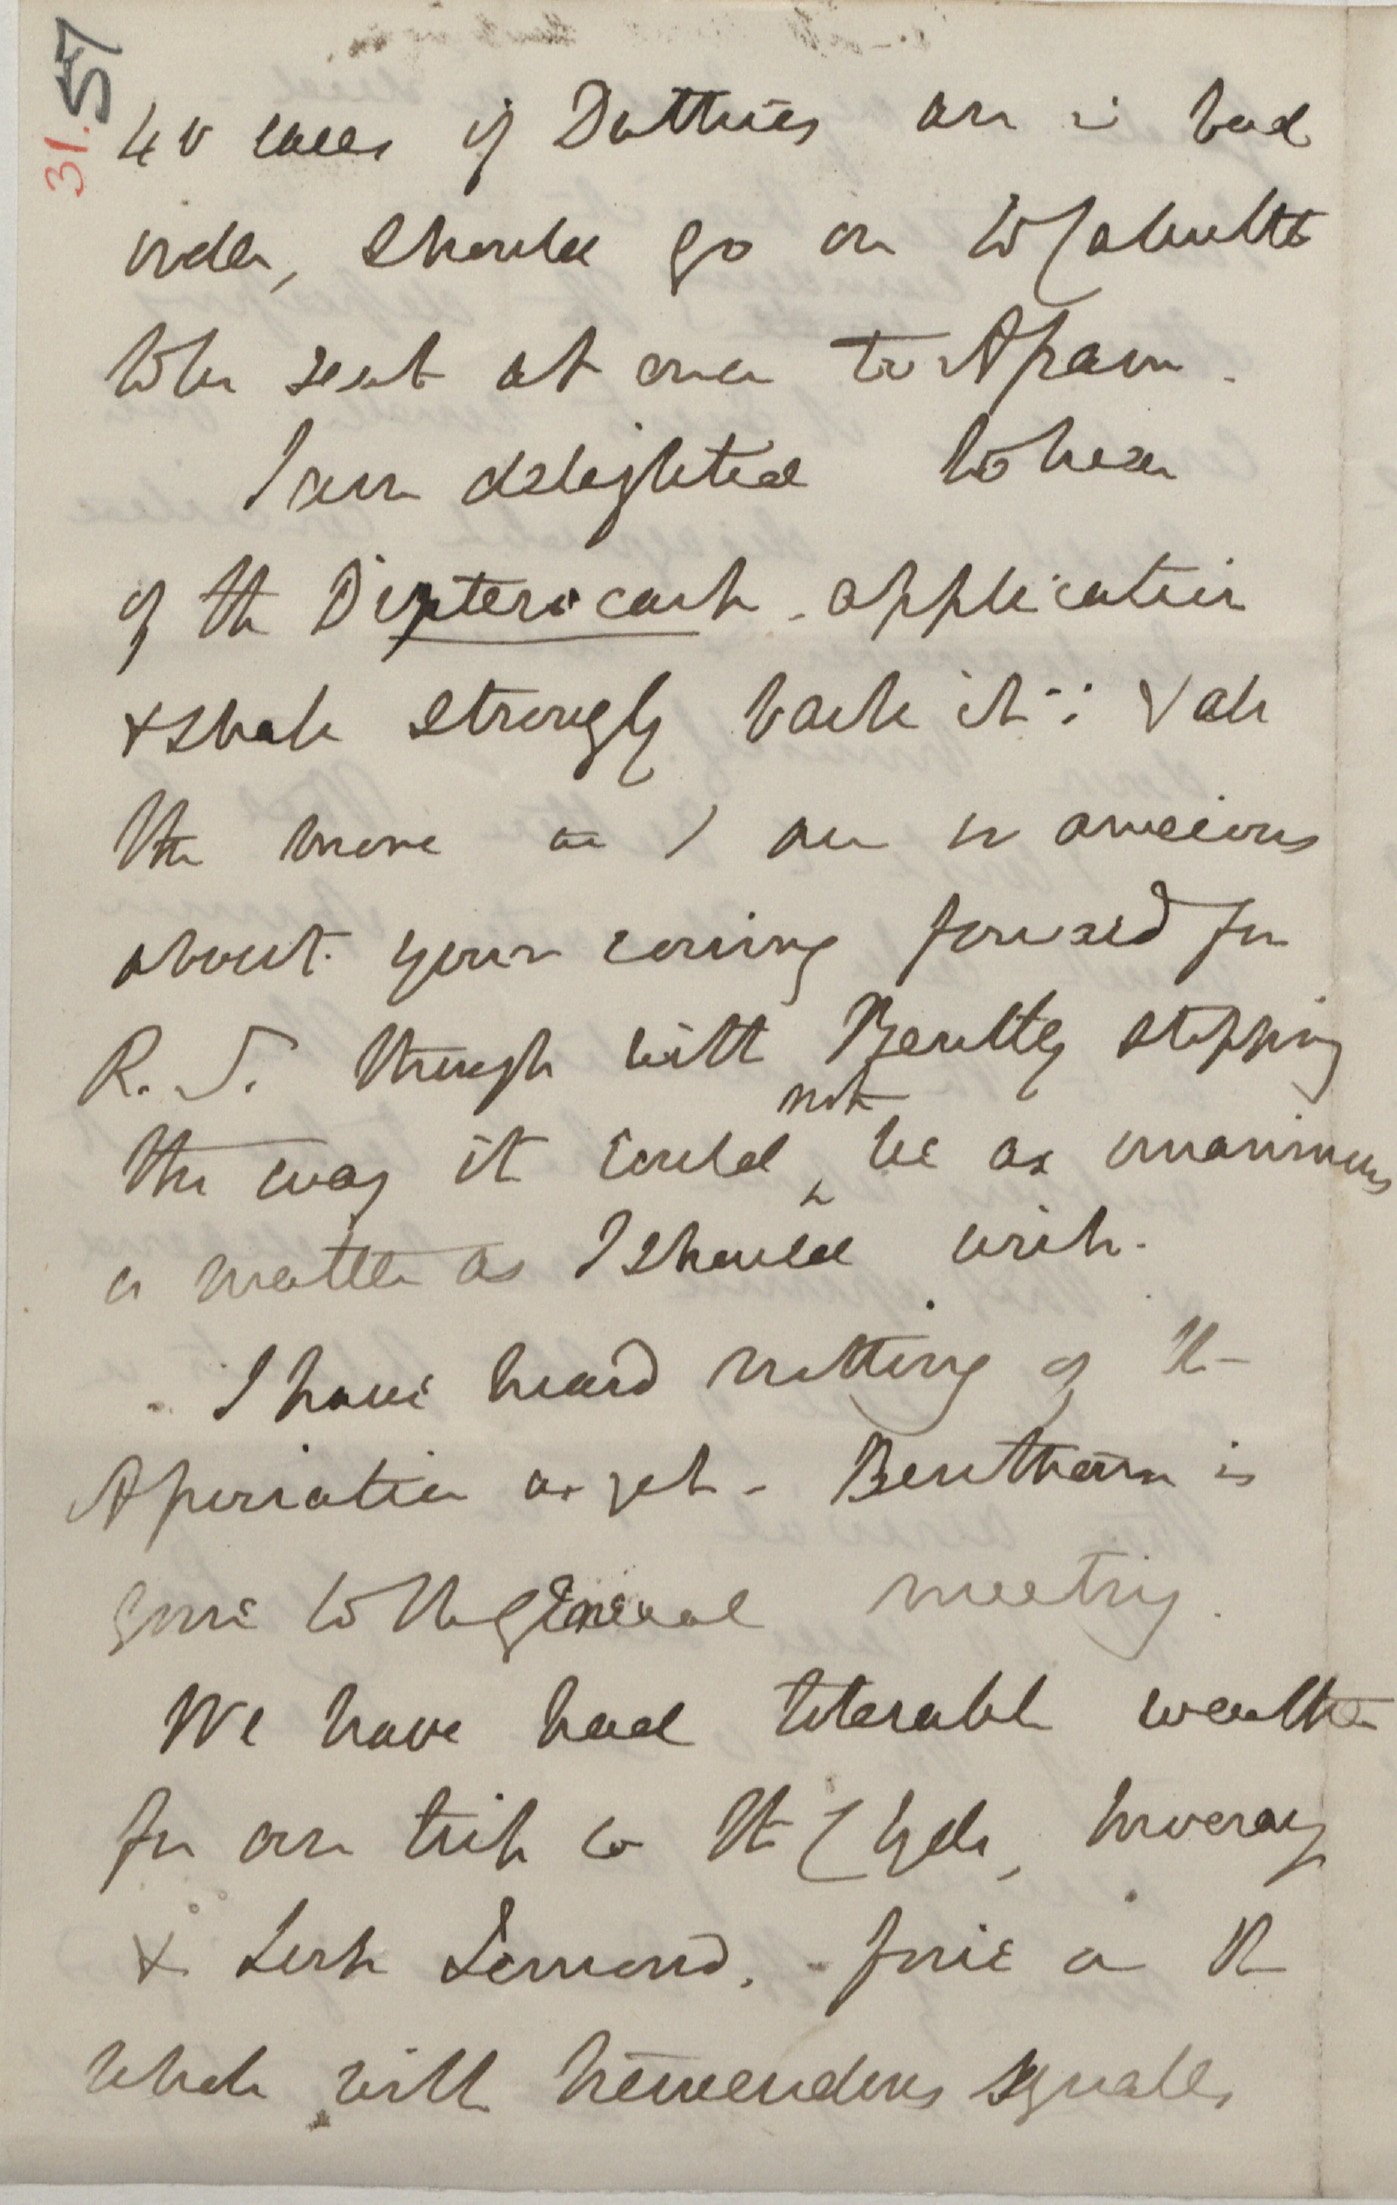 57
31.
40 cases of Duthies are in bad
order, should go on to Calcutta
to be sent at once to Assam.
I am delighted to hear
of the Dipterocarp. application
& shall strongly back it: & all
the more as I am so anxious
about your coming forward for
R. S. though with Bentley stopping
the way it could not be as unanimous
a matter as I should wish.
I have heard nothing of the
Association as yet - Bentham is
gone to the general meeting.
We have had tolerable weather
for our trip to the Clyde, Inveray
& Loch Lomond. - fine on the
whole with tremendous squalls